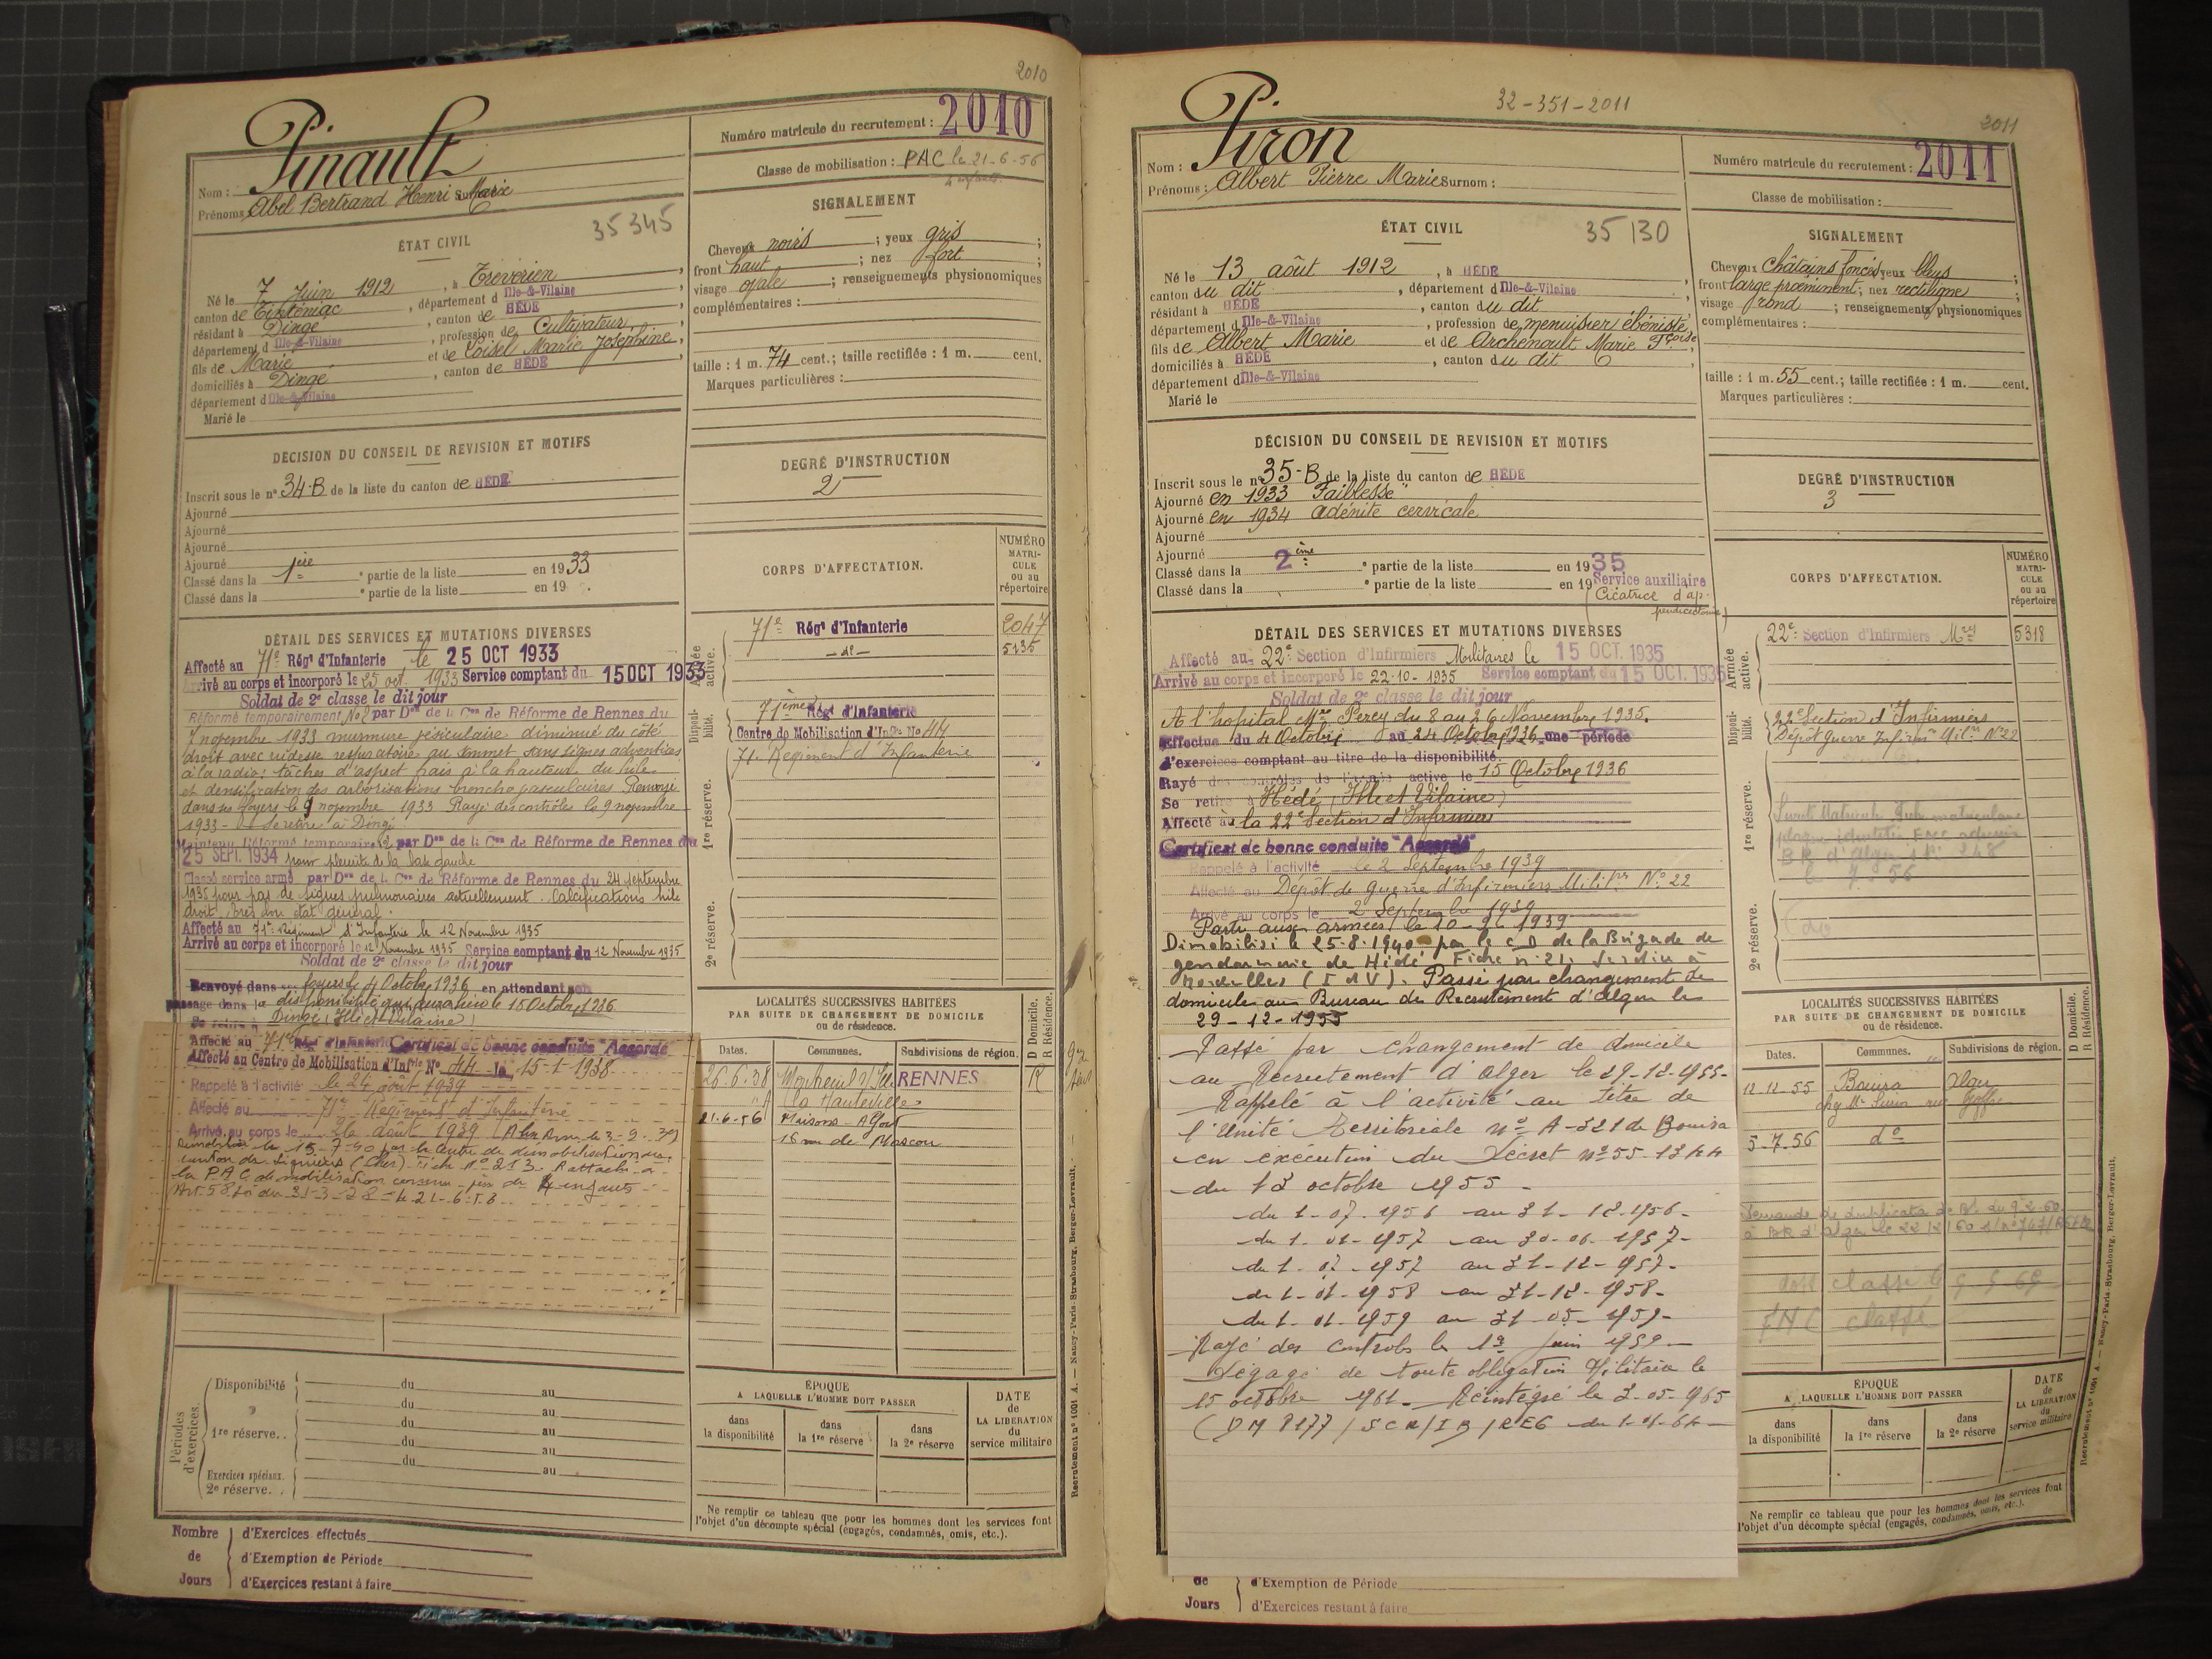 2010
Pinault
Nom :
Prénoms : Abel Bertrand Henri Marie
Numéro matricule du recrutement : 2010
Classe de mobilisation : PAC le 21-6-56
4 enfants
35345
ÉTAT CIVIL
Né le 7 Juin 1912, à Trévérien
canton de Tinténiac, département d Ille-&-Vilaine
résidant à Dingé, canton de HÉDÉ
département d Ille-&-Vilaine, profession de Cultivateur
fils de Marie et de Loisel Marie Joséphine
domiciliés à Dingé, canton de HÉDÉ
département d Ille-&-Vilaine
Marié le
SIGNALEMENT
Cheveux noirs ; yeux gris ;
front haut ; nez fort ;
visage ovale ; renseignements physionomiques
complémentaires :
taille : 1 m. 74 cent.; taille rectifiée : 1 m. cent.
Marques particulières :
DÉCISION DU CONSEIL DE REVISION ET MOTIFS
Inscrit sous le n° 34-B de la liste du canton de HÉDÉ
Ajourné
Ajourné
Ajourné
Ajourné
Classé dans la 1ère partie de la liste en 1933
Classé dans la ° partie de la liste en 19 .
DEGRÉ D'INSTRUCTION
2
CORPS D'AFFECTATION.
NUMÉRO MATRI-CULE ou au répertoire
Armée active.
71e Régt d'Infanterie 2047
-do- 5135
Disponi-bilité.
71ème Régt d'Infanterie
Centre de Mobilisation d'Infie No 44
71. Régiment d'Infanterie
1re réserve.
2e réserve.
DÉTAIL DES SERVICES ET MUTATIONS DIVERSES
Affecté au 71e Régt d'Infanterie le 25 OCT 1933
Arrivé au corps et incorporé le 25 oct. 1933 Service comptant du 15 OCT 1933
Soldat de 2e classe le dit jour
Réformé temporairement No 2 par Don de la Con de Réforme de Rennes du
7 novembre 1933 murmure vésiculaire diminué du côté
droit avec rudesse respiratoire au sommet sans signes adventices
à la radio : tâches d'aspect à la hauteur du hile
et densification des arborisations broncho vasculaires Renvoyé
dans ses foyers le 9 novembre 1933 Rayé des contrôles le 9 novembre
1933 - Se retire à Dingé.
Maintenu Réformé temporaire 2 par Don de la Con de Réforme de Rennes du
25 SEPT. 1934 pour pleurite de la base gauche
Classé service armé par Don de la Con de Réforme de Rennes du 24 septembre
1935 pour pas de signes pulmonaires actuellement. Calcifications hile
droit, très bon état général.
Affecté au 71e Régiment d'Infanterie le 12 Novembre 1935
Arrivé au corps et incorporé le 12 Novembre 1935 Service comptant du 12 Novembre 1935
Soldat de 2e classe le dit jour
Renvoyé dans ses foyers le 4 Octobre 1936 en attendant son
passage dans la disponibilité qui aura lieu le 15 Octobre 1936
Se retire à Dingé (Ille et Vilaine)
Affecté au 71e Régt d'Infanterie Certificat de bonne conduite "Accordé"
Affecté au Centre de Mobilisation d'Infrie No 44 le 15-1-1938
Rappelé à l'activité le 24 août 1939
Affecté au 71e Régiment d'Infanterie
Arrivé au corps le 26 août 1939
Démobilisé le 15-7-40 par le Centre de démobilisation du
canton de (Cher) Fiche No 213. Rattaché à
la P.A.C. de mobilisation comme père de 4 enfants
Art. 58 Loi du 31-3-28 - le 21-6-56
LOCALITÉS SUCCESSIVES HABITÉES
PAR SUITE DE CHANGEMENT DE DOMICILE
ou de résidence.
D Domicile. R Résidence.
Dates. Communes. Subdivisions de région.
26.6.38 RENNES R
21-6-56 Maisons-Alfort
Périodes d'exercices.
Disponibilité du au
1re réserve. du au
Exercices spéciaux.
2e réserve.
ÉPOQUE
A LAQUELLE L'HOMME DOIT PASSER
dans la disponibilité
dans la 1re réserve
dans la 2e réserve
DATE de LA LIBÉRATION du service militaire
Ne remplir ce tableau que pour les hommes dont les services font
l'objet d'un décompte spécial (engagés, condamnés, omis, etc.).
Nombre de Jours
d'Exercices effectués
d'Exemption de Période
d'Exercices restant à faire
Recrutement n° 1001 A. — Nancy-Paris-Strasbourg, Berger-Levrault.
32-351-2011
2011
Piron
Nom :
Prénoms : Albert Pierre Marie Surnom :
Numéro matricule du recrutement : 2011
Classe de mobilisation :
ÉTAT CIVIL
35130
Né le 13 août 1912, à HÉDÉ
canton du dit, département d Ille-&-Vilaine
résidant à HÉDÉ, canton du dit
département d Ille-&-Vilaine, profession de menuisier ébéniste,
fils de Albert Marie et de Archenoult Marie Fçoise
domiciliés à HÉDÉ, canton du dit
département d Ille-&-Vilaine
Marié le
SIGNALEMENT
Cheveux châtains foncés yeux bleus ;
front large proéminent ; nez rectiligne ;
visage rond ; renseignements physionomiques
complémentaires :
taille : 1 m. 55 cent.; taille rectifiée : 1 m. cent.
Marques particulières :
DÉCISION DU CONSEIL DE REVISION ET MOTIFS
Inscrit sous le n° 35-B de la liste du canton de HÉDÉ
Ajourné en 1933 "Faiblesse"
Ajourné en 1934 adénite cervicale
Ajourné
Ajourné
Classé dans la 2ème partie de la liste en 1935
Classé dans la ° partie de la liste en 19 Service auxiliaire
(Cicatrice d'appendicectomie)
DEGRÉ D'INSTRUCTION
3
CORPS D'AFFECTATION.
NUMÉRO MATRI-CULE ou au répertoire
Armée active.
22e Section d'Infirmiers Mres 5318
Disponi-bilité.
22e Section d'Infirmiers
Dépôt Guerre Infirm Milres No 22
1re réserve.
2e réserve.
DÉTAIL DES SERVICES ET MUTATIONS DIVERSES
Affecté au 22e Section d'Infirmiers Militaires le 15 OCT. 1935
Arrivé au corps et incorporé le 22-10-1935 Service comptant du 15 OCT. 1935
Soldat de 2e classe le dit jour
A l'hopital Mre Percy du 8 au 26 Novembre 1935.
Effectue du 4 Octobre au 24 Octobre 1936 une période
d'exercices comptant au titre de la disponibilité.
Rayé des contrôles de l'armée active le 15 Octobre 1936
Se retire à Hédé (Ille et Vilaine)
Affecté à la 22e Section d'Infirmiers
Certificat de bonne conduite "Accordé"
Rappelé à l'activité le 2 Septembre 1939
Affecté au Dépôt de guerre d'Infirmiers Militres No 22
Arrivé au corps le 2 Septembre 1939
Parti aux armées le
Démobilisé le 25-8-1940 par le CD de la Brigade de
gendarmerie de Hédé Fiche n° 21. Se retire à
(I et V). Passé par changement de
domicile au Bureau de Recrutement d'Alger le
29-12-1955
Passé par changement de domicile
au Recrutement d'Alger le 29-12-1955-
Rappelé à l'activité au titre de
l'Unité Territoriale no A-321 de Bouira
en exécution du Décret no 55-1344
du 13 octobre 1955 -
du 1-07-1956 au 31-12-1956-
du 1-01-1957 au 30-06-1957-
du 1-07-1957 au 31-12-1957-
du 1-01-1958 au 31-12-1958-
du 1-01-1959 au 31-05-1959-
Rayé des contrôles le 1er Juin 1959 -
Dégagé de toute obligation Militaire le
15 octobre 1961 - Réintégré le 3-05-1965
(DM 8177 / SCR/IB/REG du 1-01-64 -
LOCALITÉS SUCCESSIVES HABITÉES
PAR SUITE DE CHANGEMENT DE DOMICILE
ou de résidence.
D Domicile. R Résidence.
Dates. Communes. Subdivisions de région.
12-12-55 Bouira Alger
5-7-56 do
Demande de duplicata
classé le
FNC classé
ÉPOQUE
A LAQUELLE L'HOMME DOIT PASSER
dans la disponibilité
dans la 1re réserve
dans la 2e réserve
DATE de LA LIBÉRATION du service militaire
Ne remplir ce tableau que pour les hommes dont les services font
l'objet d'un décompte spécial (engagés, condamnés, omis, etc.).
de Jours
d'Exemption de Période
d'Exercices restant à faire
Recrutement n° 1001 A. — Nancy-Paris-Strasbourg, Berger-Levrault.